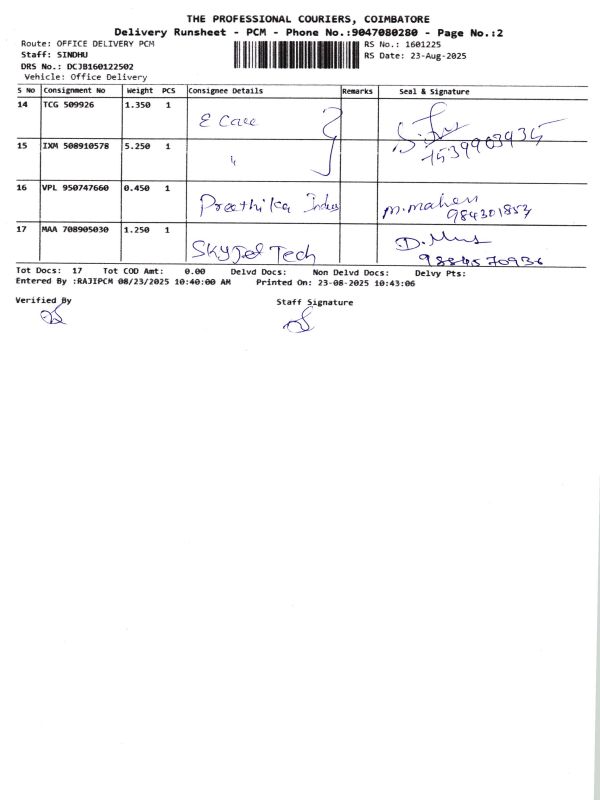 THE PROFESSIONAL COURIERS, COIMBATORE
Delivery Runsheet - PCM - Phone No.:9047080280 - Page No.:2
Route: OFFICE DELIVERY PCM RS No.: 1601225
Staff: SINDHU RS Date: 23-Aug-2025
DRS No.: DCJB160122502
Vehicle: Office Delivery
S No Consignment No Weight PCS Consignee Details Remarks Seal & Signature
14 TCG 509926 1.350 1 E Care
15 IXM 508910578 5.250 1 "
16 VPL 950747660 0.450 1 Preethika Indus M. Mahen
984301853
17 MAA 708905030 1.250 1 SKYJet Tech
9884570936
Tot Docs: 17 Tot COD Amt: 0.00 Delvd Docs: Non Delvd Docs: Delvy Pts:
Entered By :RAJIPCM 08/23/2025 10:40:00 AM Printed On: 23-08-2025 10:43:06
Verified By Staff Signature